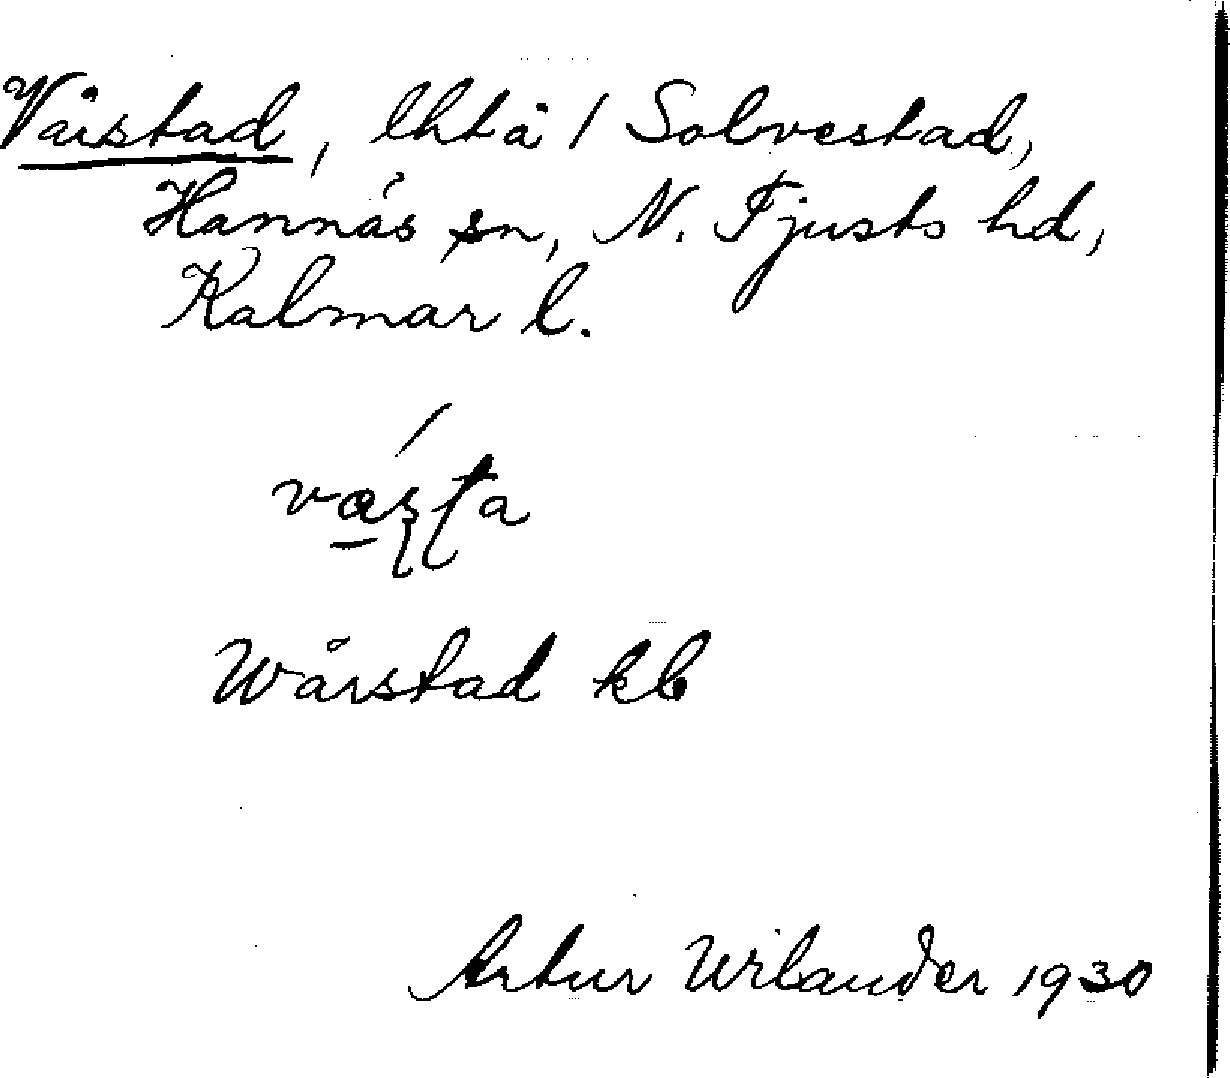 Vårstad, lhtå / Solvestad,
Hannäs sn, N. Tjusts hd,
Kalmar l.
Wårstad kb
Artur Wilander 1930